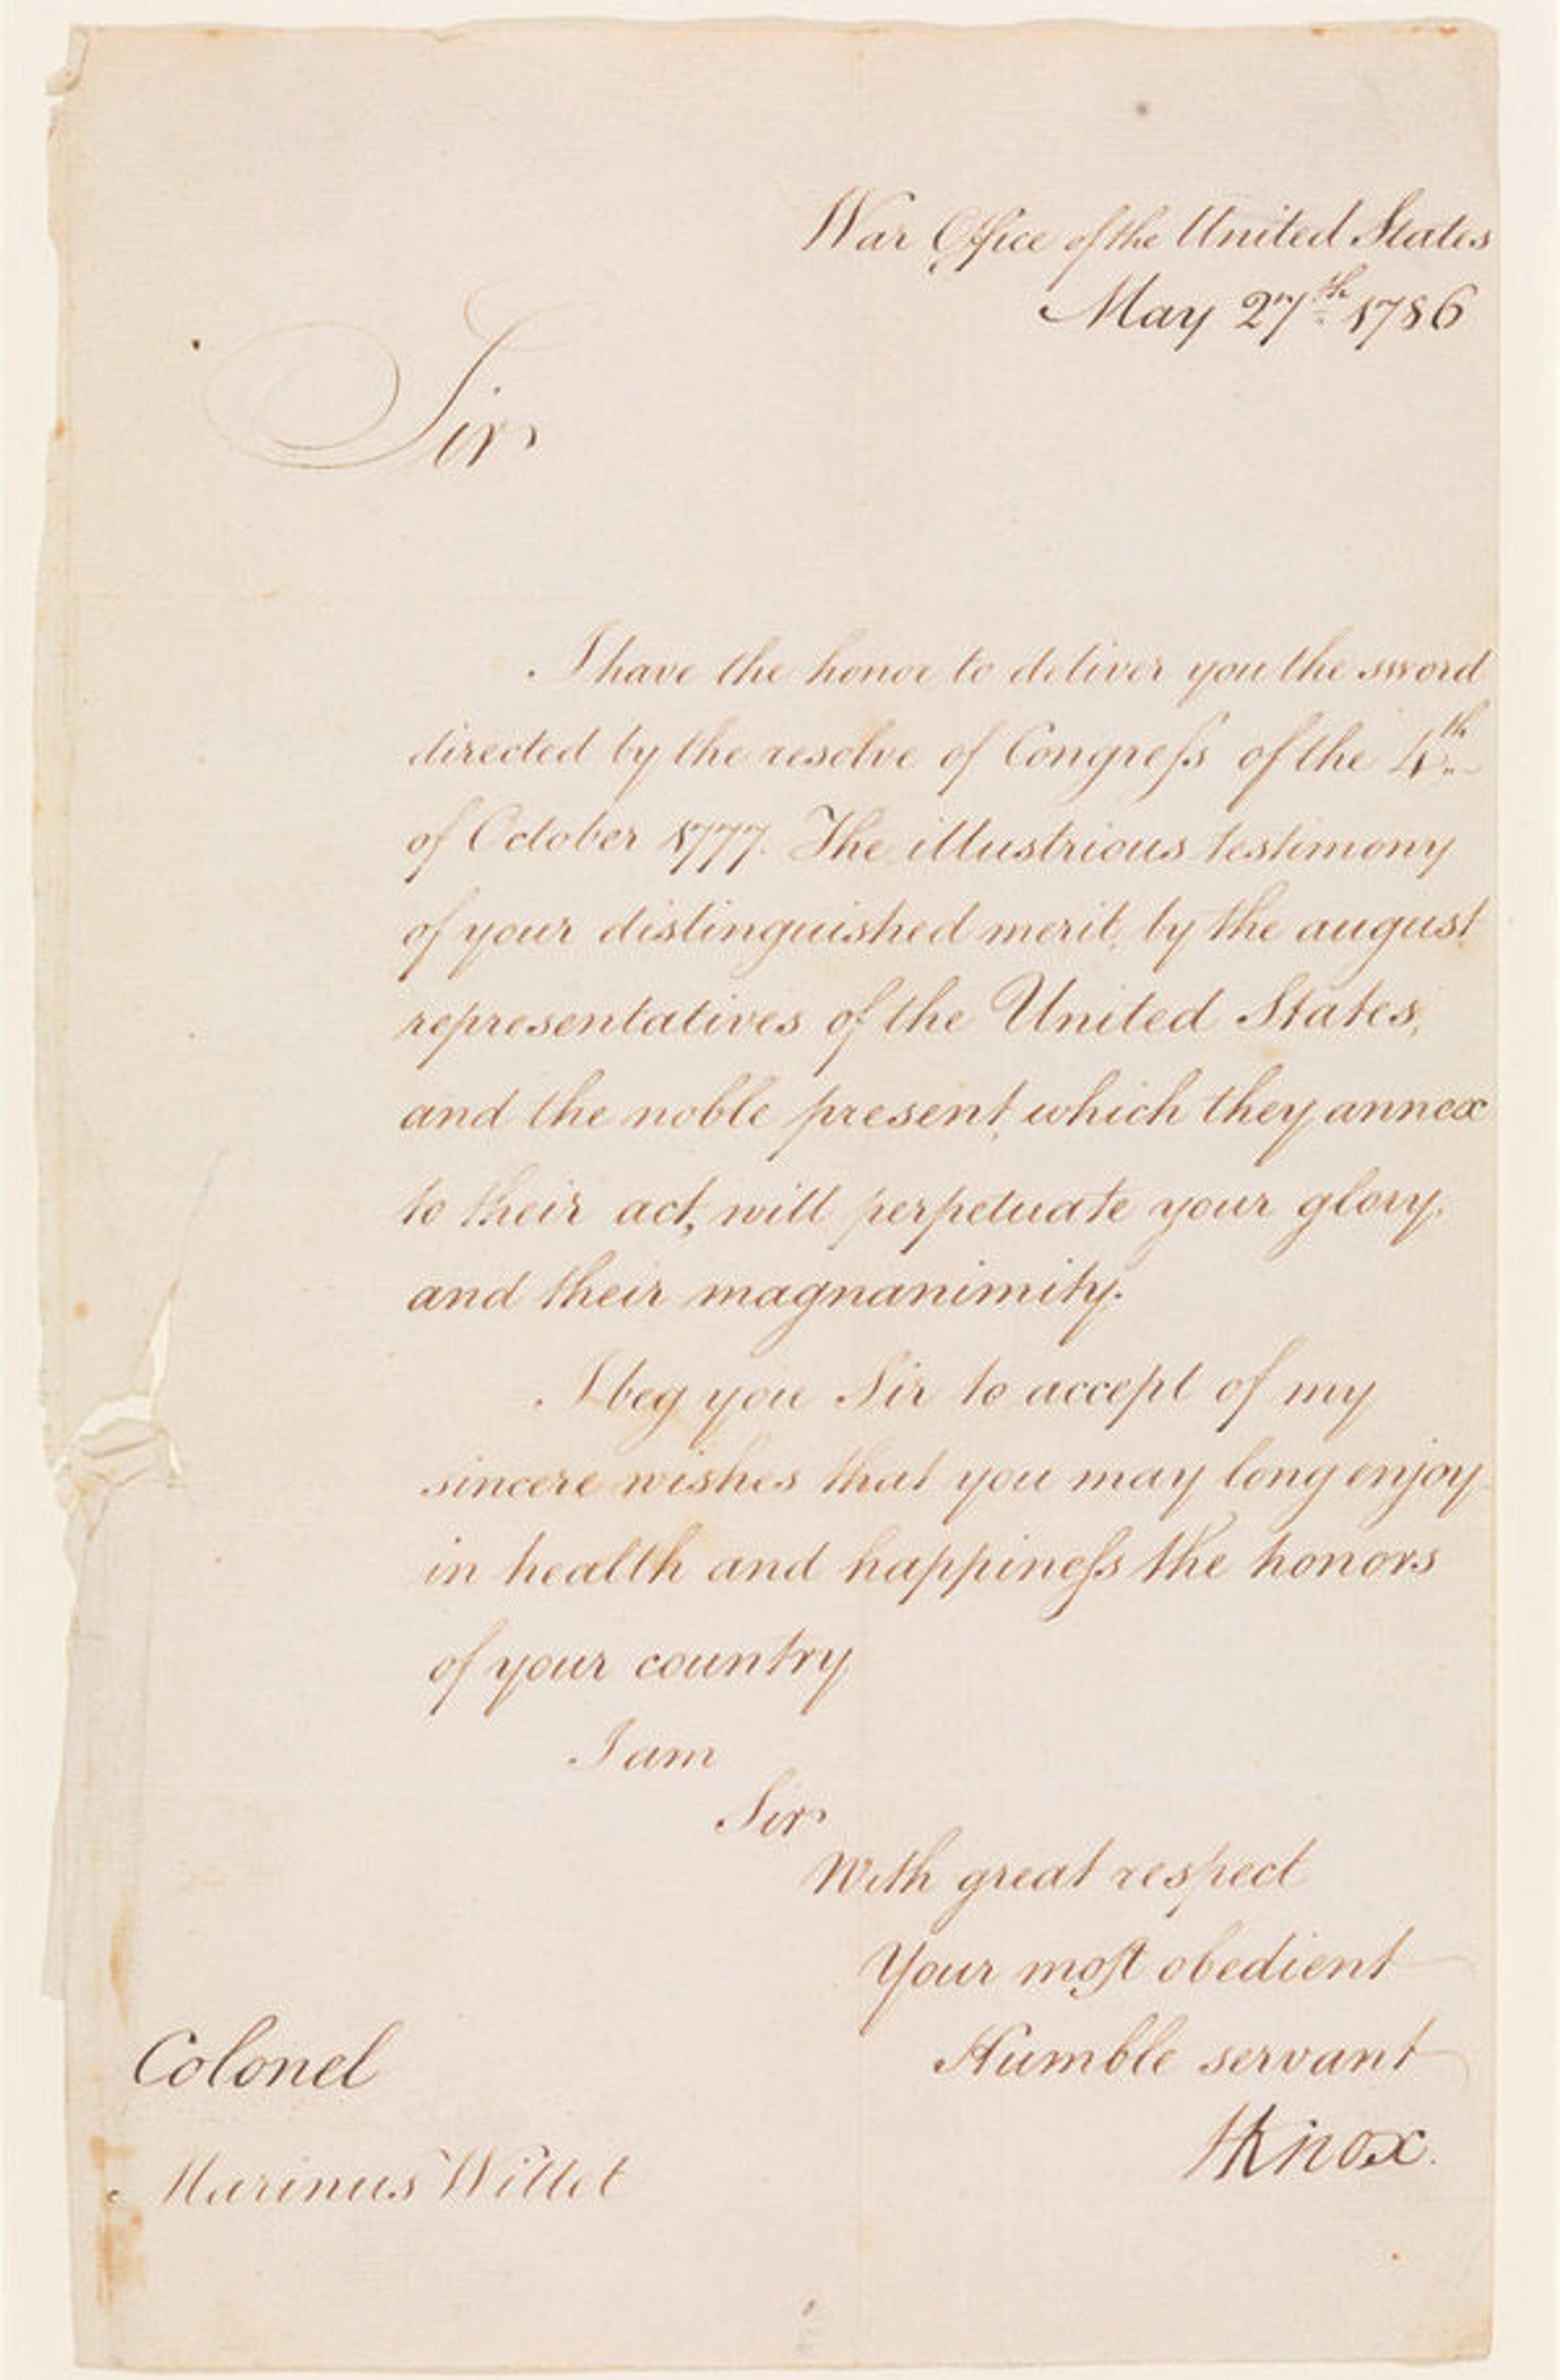 War Office of the United States
May 27th 1786
Sir
I have the honor to deliver you the sword
directed by the resolve of Congreſs of the 4th
of October 1777. The illustrious testimony
of your distinguished merit, by the august
representatives of the United States,
and the noble present, which they annex
to their act, will perpetuate your glory,
and their magnanimity.
I beg you Sir to accept of my
sincere wishes that you may long enjoy
in health and happineſs the honors
of your country
I am
Sir
With great respect
Your moſt obedient
Humble servant
HKnox.
Colonel
Marinus Willet